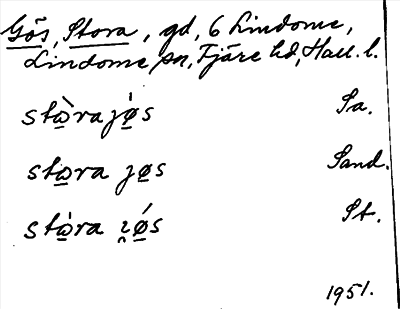 Gös, Stora, gd, 6 Lindome,
Lindome sn, Fjäre hd, Hall. l.
stὼ̲rajø̲̍s Sa.
stω̲ra jø̲s Sand.
stω̲̍ra ı̯ǿ̲s St.
1951.